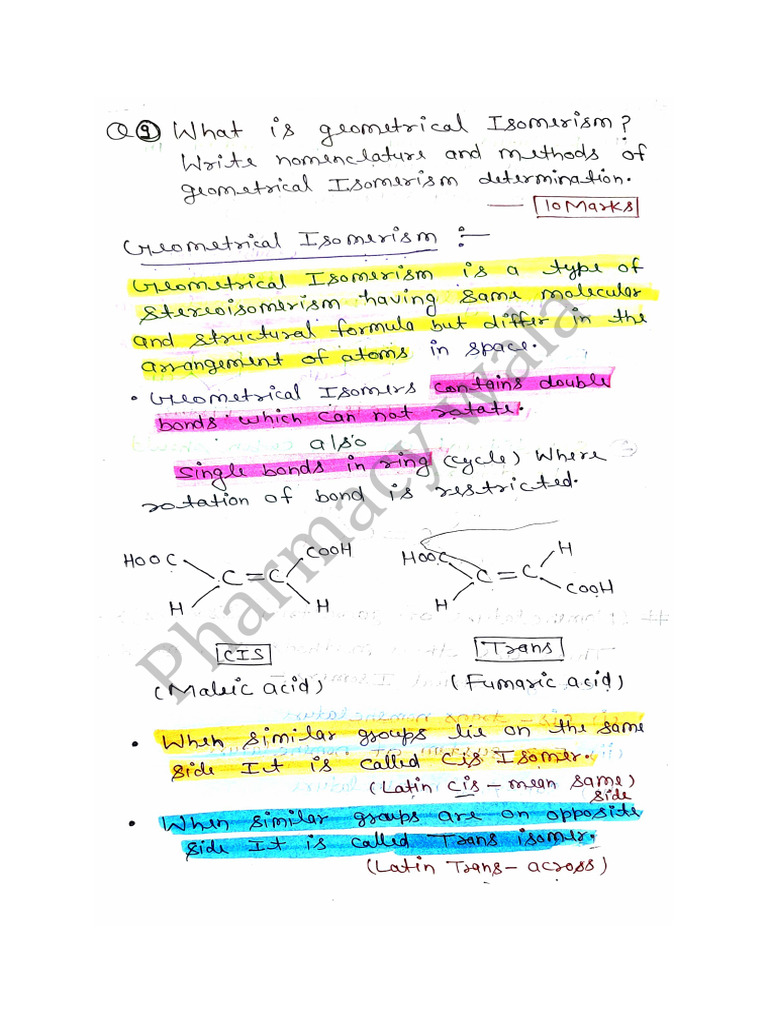 Q ⑨ What is geometrical Isomerism?
Write nomenclature and methods of
geometrical Isomerism determination.
— 10 Marks
Geometrical Isomerism :-
Geometrical Isomerism is a type of
stereoisomerism having same molecular
and structural formula but differ in the
arrangement of atoms in space.
• Geometrical Isomers contains double
bonds which can not rotate.
also
single bonds in ring (cycle) where
rotation of bond is restricted.
HOOC COOH
C=C
H H
HOOC H
C=C
H COOH
CIS
Trans
(Maleic acid)
(Fumaric acid)
• When similar groups lie on the same
side It is called Cis Isomer.
(Latin Cis – mean same)
side
• When similar groups are on opposite
side It is called Trans isomer.
(Latin Trans – across)
Pharmacy wala